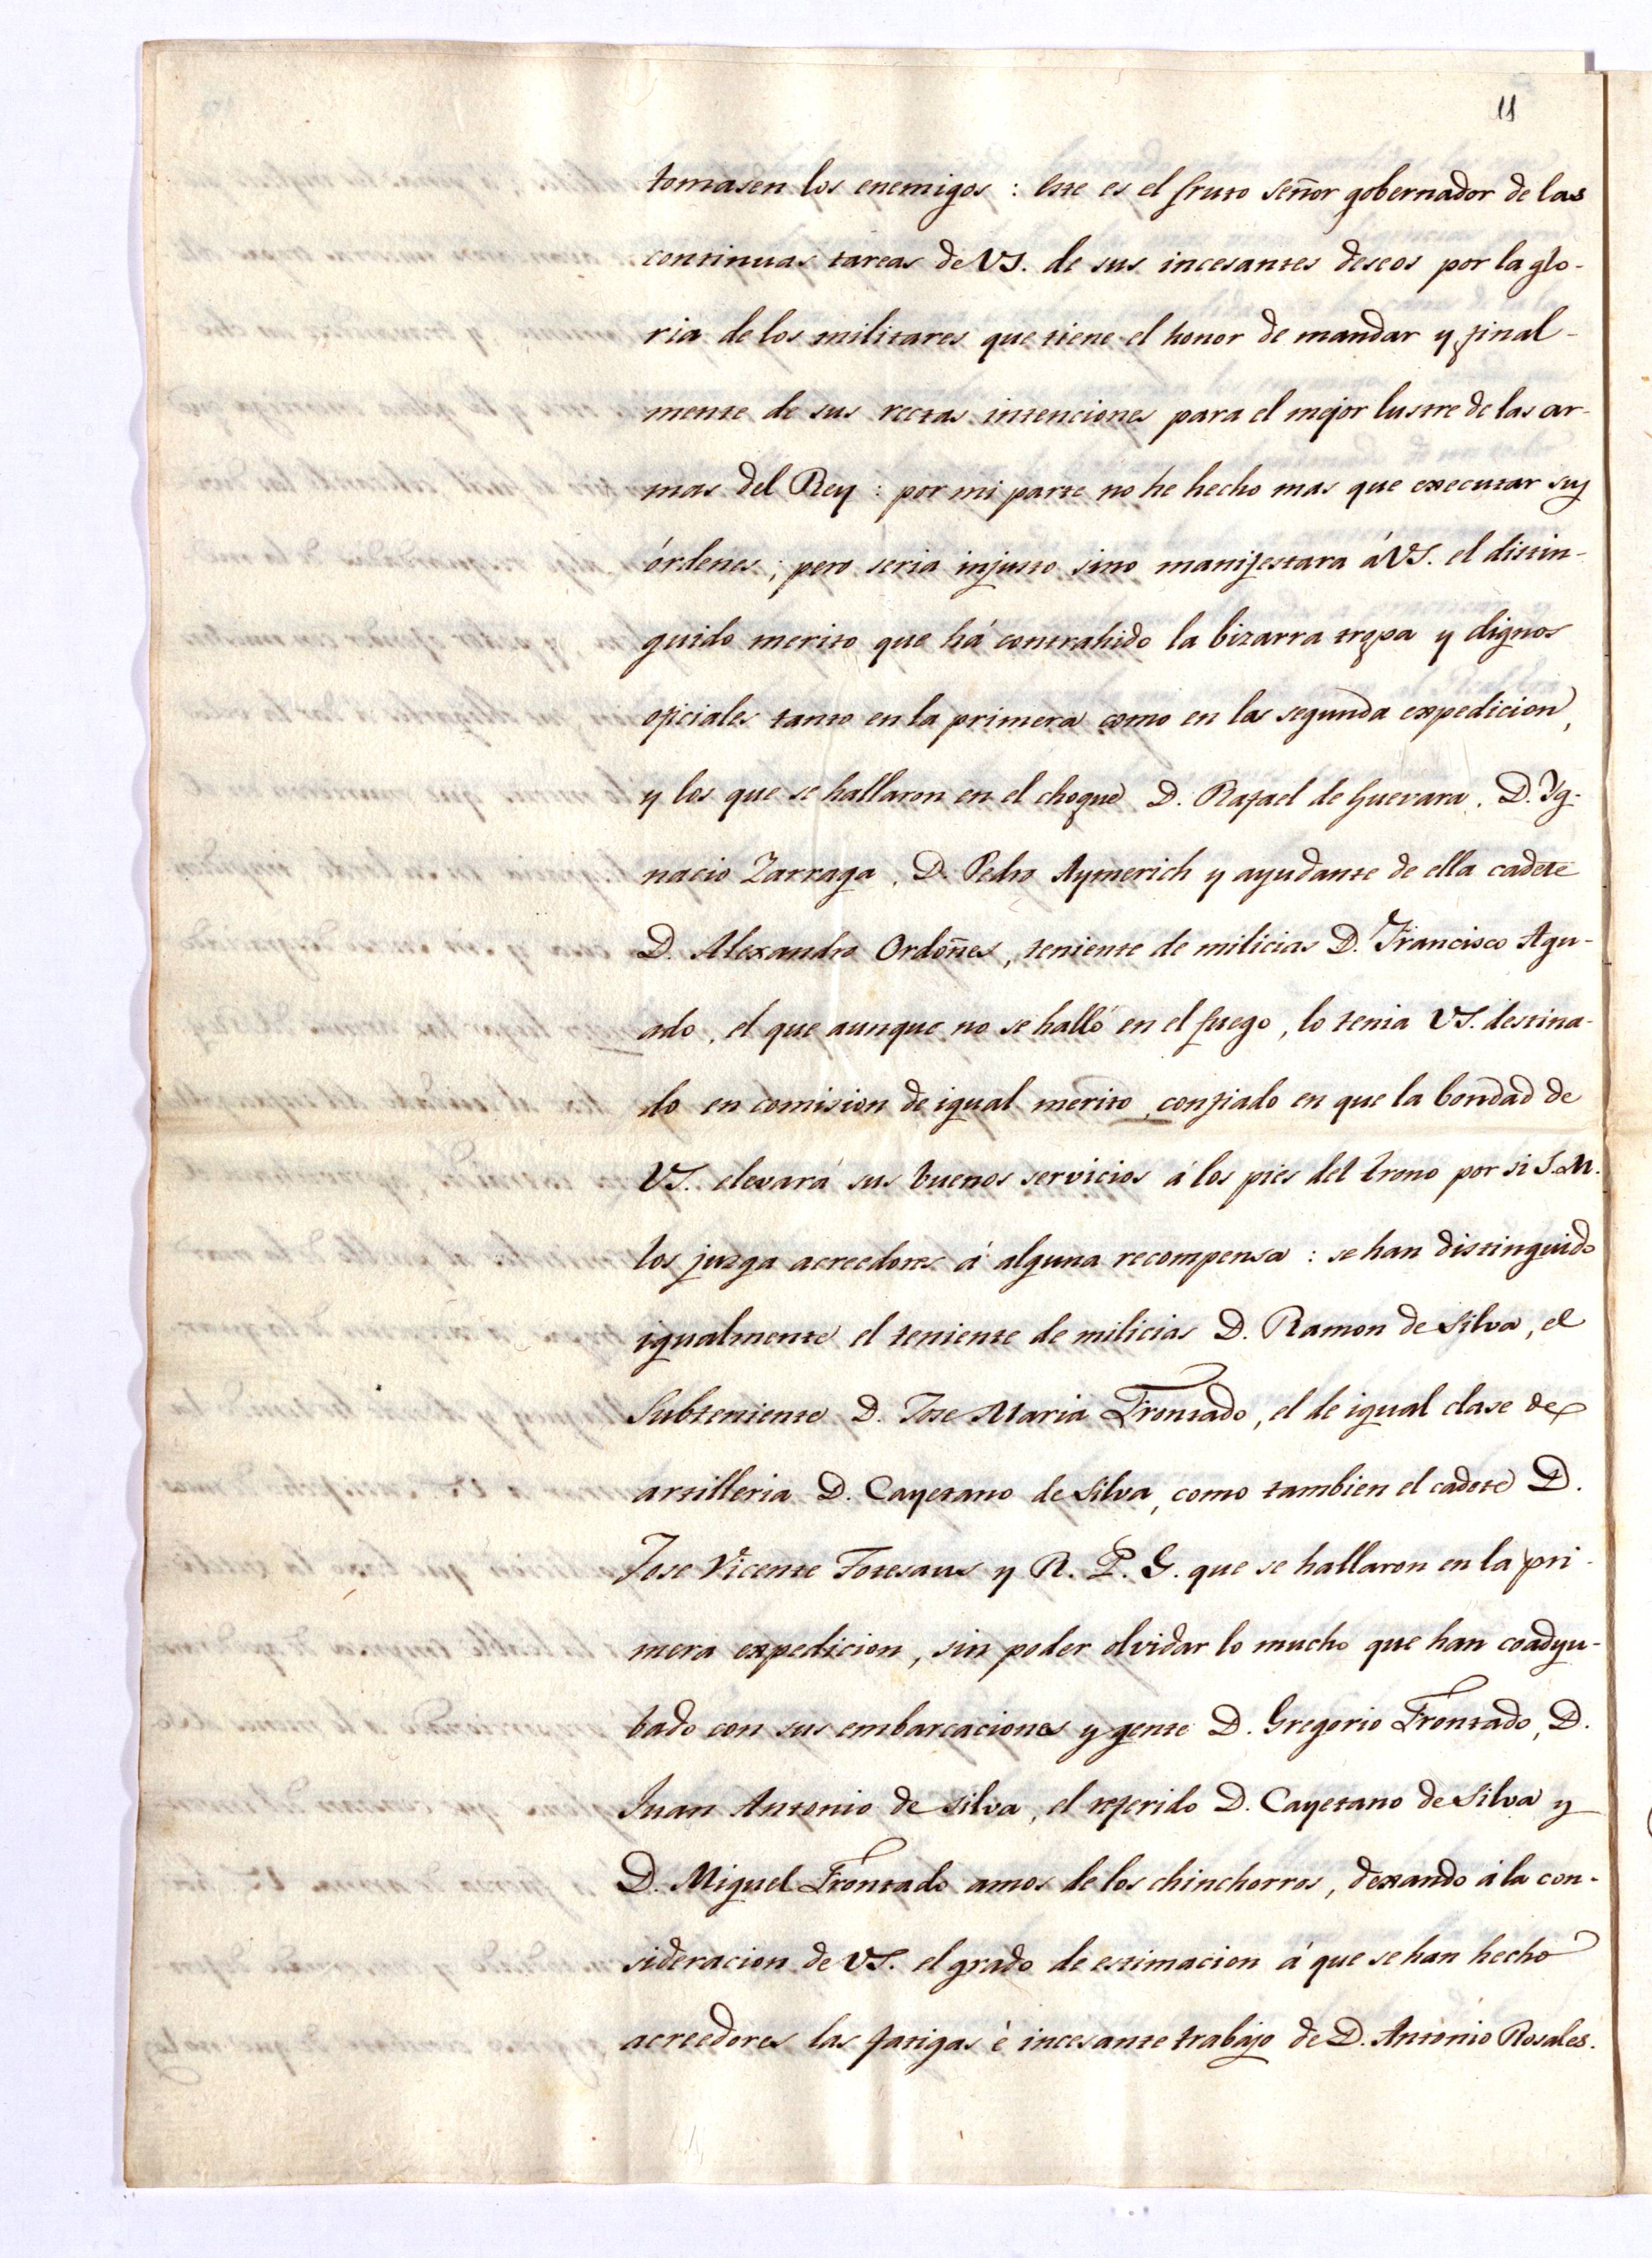 11
tomasen los enemigos : Este es el fruto señor gobernador de las
continuas tareas de VS. de sus incesantes deseos por la glo-
ria de los militares que tiene el honor de mandar y final-
mente de sus rectas intenciones para el mejor lustre de las ar-
mas del Rey : por mi parte no hé hecho mas que executar sus
órdenes ; pero seria injusto sino manifestara á VS. el distin-
guido merito que há contrahido la bizarra tropa y dignos
oficiales tanto en la primera como en la segunda expedicion,
y los que se hallaron en el choque D. Rafael de Guevara, D. Yg-
nacio Zarraga, D. Pedro Aymerich y ayudante de ella cadete
D. Alexandro Ordoñes, teniente de milicias D. Francisco Agu-
ado, el que aunque no se halló en el fuego, lo tenia VS. destina-
do en comision de igual merito, confiado en que la bondad de
VS. elevará sus buenos servicios á los pies del trono por si S.M.
los juzga acreedores á alguna recompensa : se han distinguido
igualmente el teniente de milicias D. Ramon de Silva, el
Subteniente D. Jose Maria Frontado, el de igual clase de
artilleria D. Cayetano de Silva, como tambien el cadete D.
Jose Vicente Totesaus y R. P. G. que se hallaron en la pri-
mera expedicion, sin poder olvidar lo mucho que han coadyu-
bado con sus embarcaciones y gente D. Gregorio Frontado, D.
Juan Antonio de Silva, el referido D. Cayetano de Silva y
D. Miguel Frontado amos de los chinchorros, dexando á la con-
sideracion de VS. el grado de estimacion á que se han hecho
acreedores las fatigas é incesante trabajo de D. Antonio Rosales.